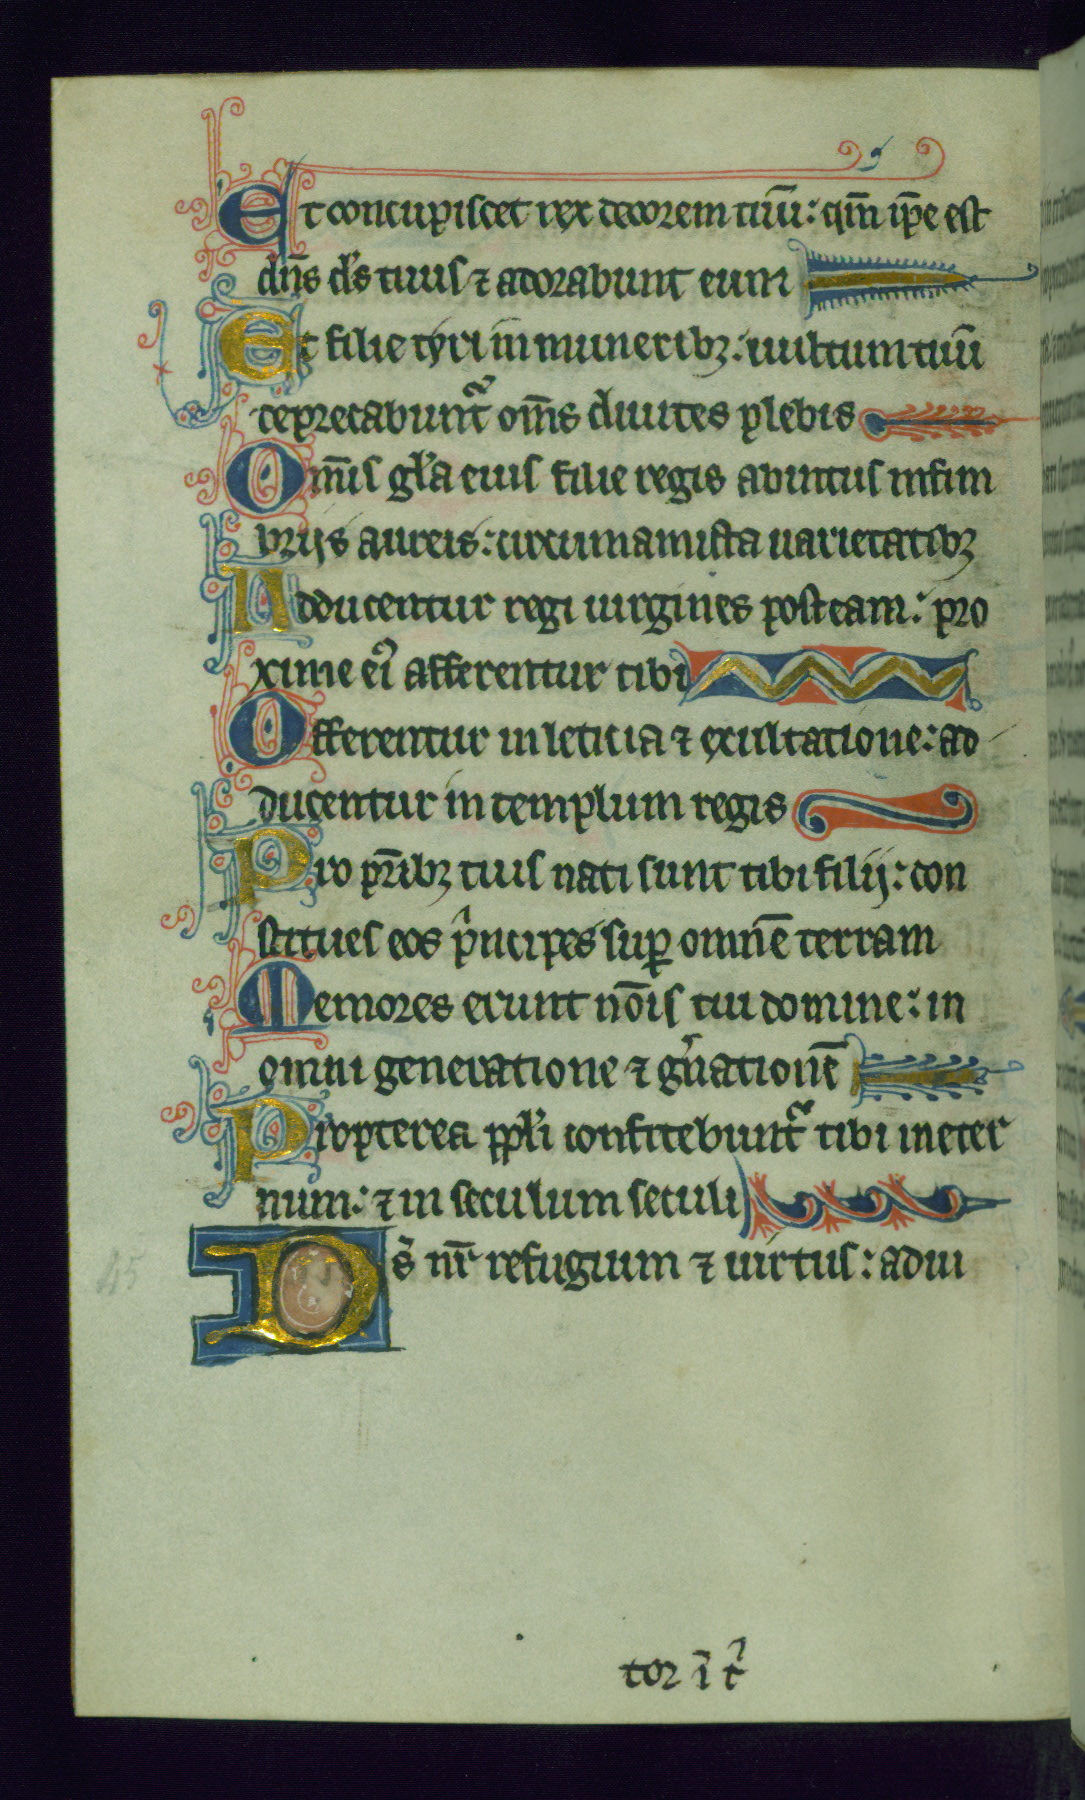 Et concupiscet rex decorem tuū: qm̄ ip̄e est
dn̄s ds̄ tuus ⁊ adorabunt eum
Et filie tyri in muneribꝫ: uultum tuū
deprecabunt᷑ om̄s diuites plebis
Omīs gl̄a eius filie regis abintus in fim
brijs aureis: circumamicta uarietatibꝫ
Adducentur regi uirgines post eam: pro
xime ei᷒ afferentur tibi
Offerentur in leticia ⁊ exultatione: ad
ducentur in templum regis
Pro pr̄ibꝫ tuis nati sunt tibi filij: con
stitues eos pͥncipes suꝑ omnē terram
Memores erunt nōis tui domine: in
omni generatione ⁊ gn̄ationē
Propterea ppl̄i confitebunt᷑ tibi in eter
num: ⁊ in seculum seculi
Ds̄ nr̄ refugium ⁊ uirtus: adiu
45
tor ī t᷑